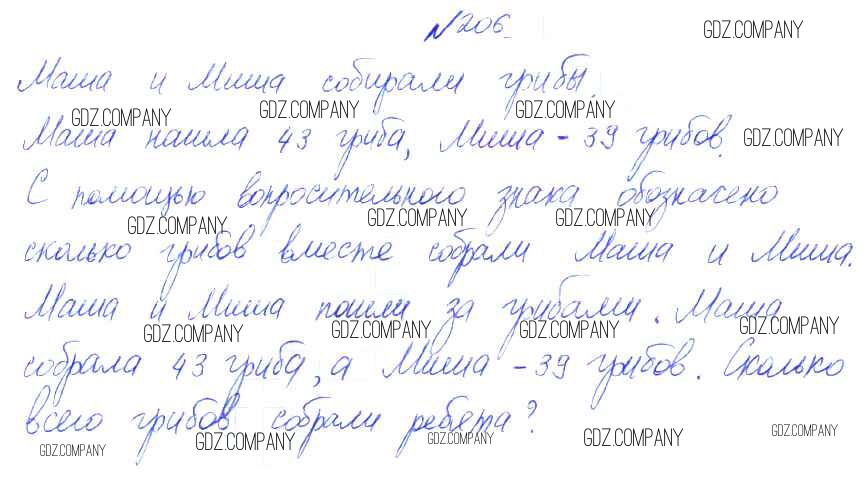 №206.
GDZ.COMPANY
Маша и Миша собирали грибы.
GDZ.COMPANY GDZ.COMPANY GDZ.COMPANY
Маша нашла 43 гриба, Миша - 39 грибов.
GDZ.COMPANY
С помощью вопросительного знака обозначено
GDZ.COMPANY GDZ.COMPANY GDZ.COMPANY
сколько грибов вместе собрали Маша и Миша.
Маша и Миша пошли за грибами. Маша
GDZ.COMPANY GDZ.COMPANY GDZ.COMPANY GDZ.COMPANY
собрала 43 гриба, а Миша - 39 грибов. Сколько
всего грибов собрали ребята?
GDZ.COMPANY GDZ.COMPANY GDZ.COMPANY GDZ.COMPANY GDZ.COMPANY